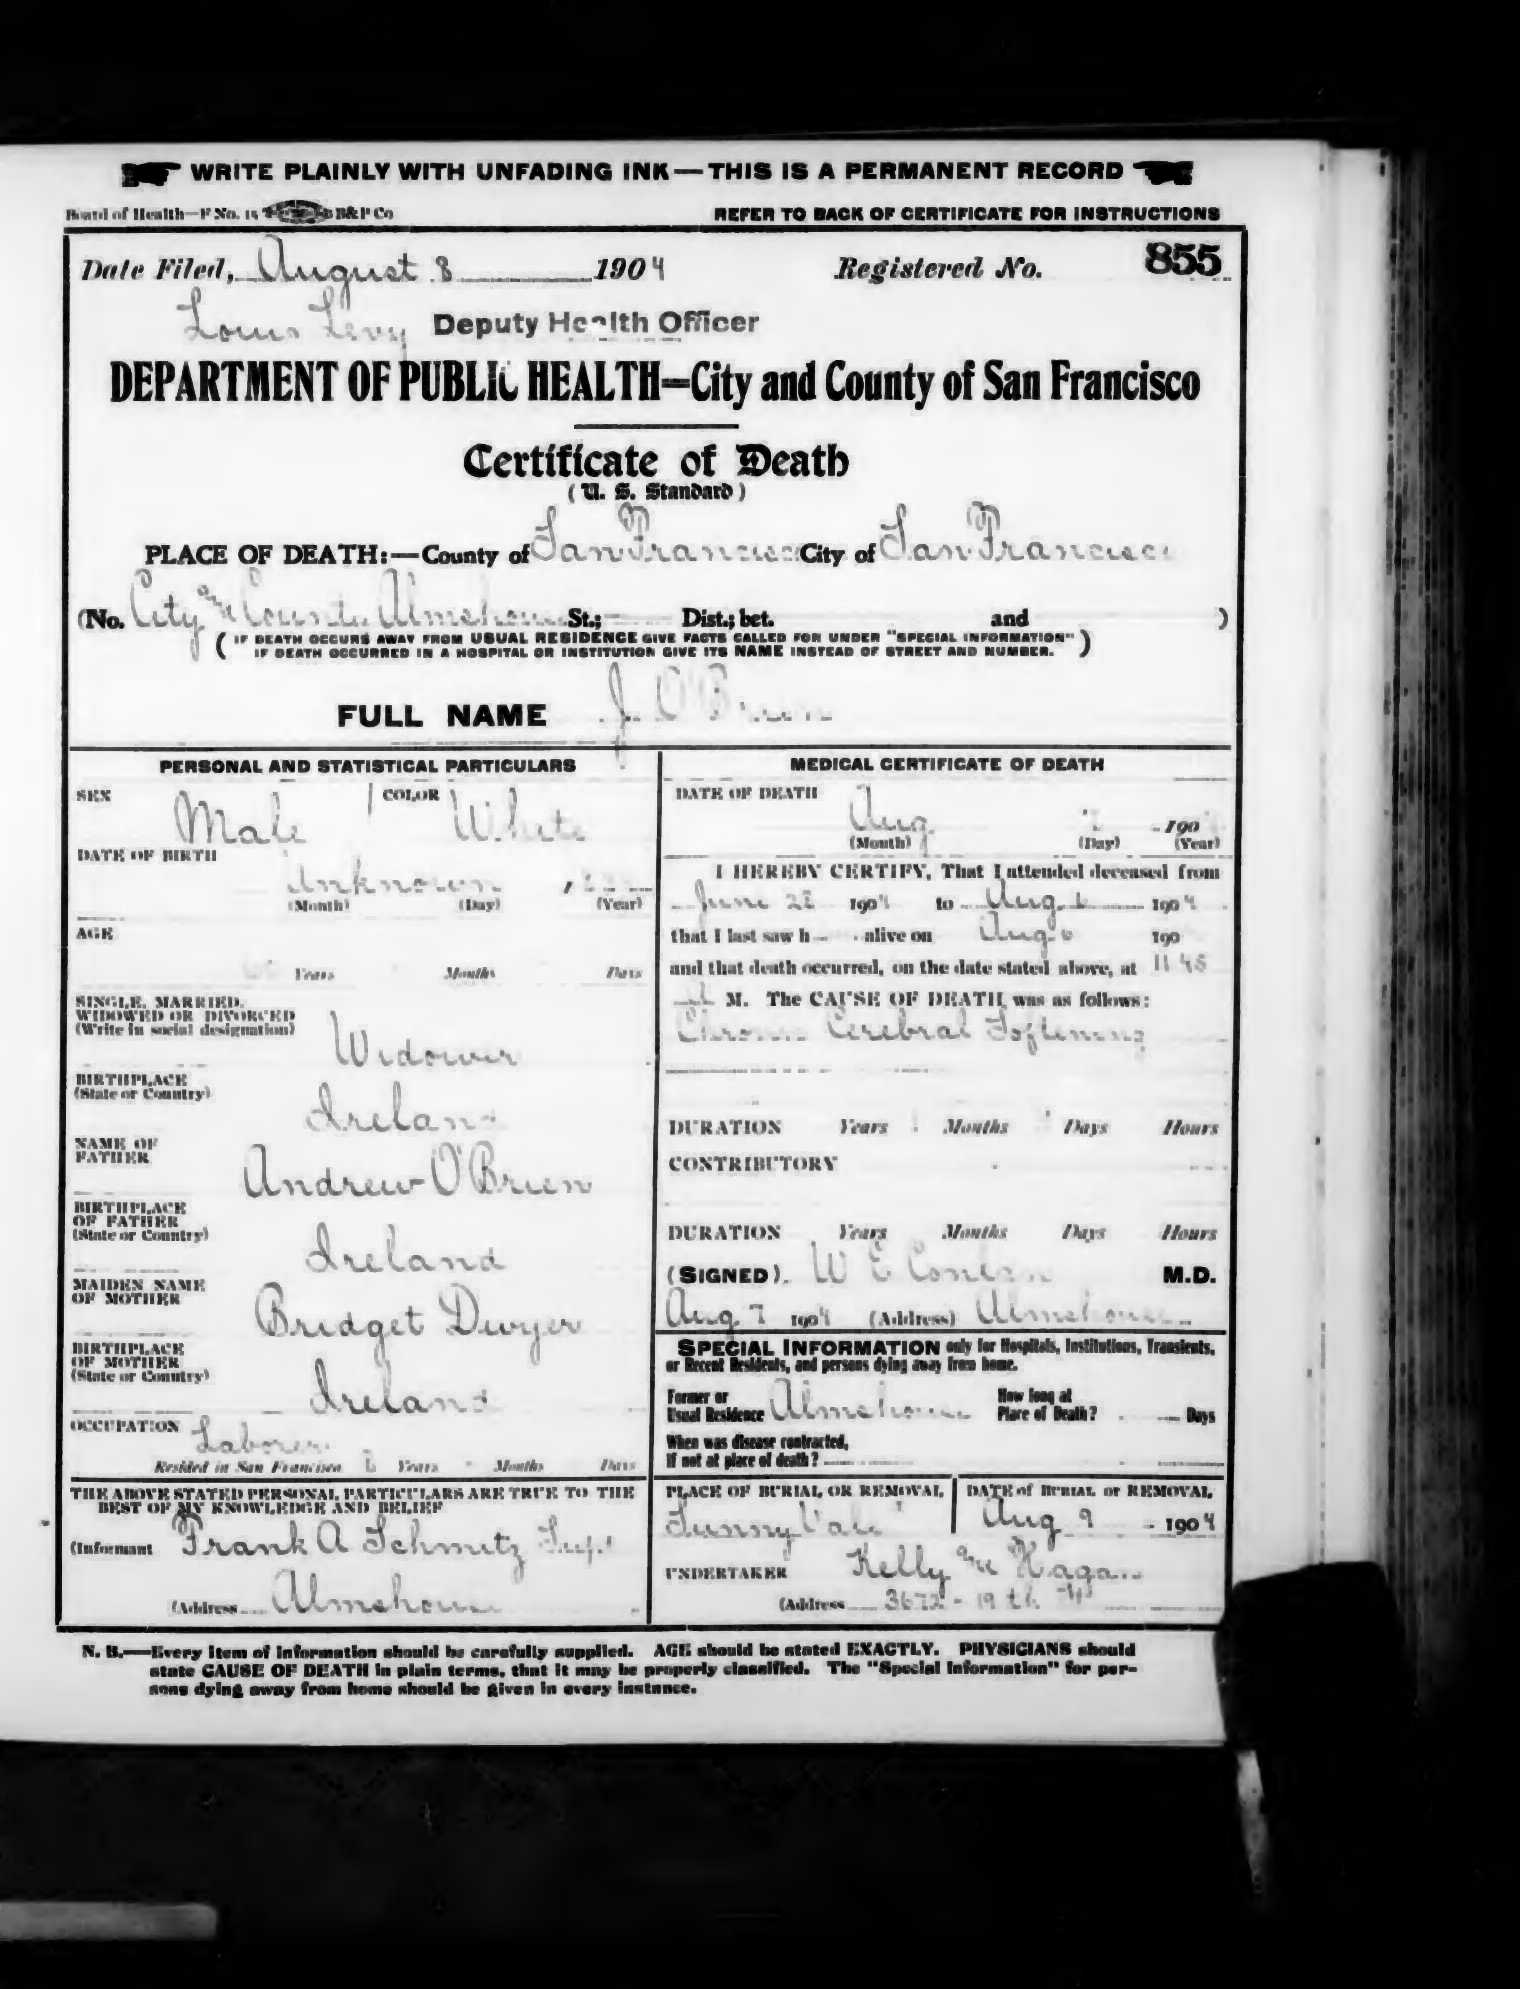 WRITE PLAINLY WITH UNFADING INK — THIS IS A PERMANENT RECORD
Board of Health—F No. 15 B&P Co REFER TO BACK OF CERTIFICATE FOR INSTRUCTIONS
Date Filed, August 8 1904 Registered No. 855
Louis Levy Deputy Health Officer
DEPARTMENT OF PUBLIC HEALTH=City and County of San Francisco
Certificate of Death
(U. S. Standard)
PLACE OF DEATH:—County of San Francisco City of San Francisco
(No. City and County Almshouse St.; Dist.; bet. and )
(IF DEATH OCCURS AWAY FROM USUAL RESIDENCE GIVE FACTS CALLED FOR UNDER "SPECIAL INFORMATION"
IF DEATH OCCURRED IN A HOSPITAL OR INSTITUTION GIVE ITS NAME INSTEAD OF STREET AND NUMBER.)
FULL NAME J. O'Brien
PERSONAL AND STATISTICAL PARTICULARS
SEX Male COLOR White
DATE OF BIRTH
Unknown , 
(Month) (Day) (Year)
AGE
Years Months Days
SINGLE, MARRIED,
WIDOWED OR DIVORCED
(Write in social designation) Widower
BIRTHPLACE
(State or Country) Ireland
NAME OF
FATHER Andrew O'Brien
BIRTHPLACE
OF FATHER
(State or Country) Ireland
MAIDEN NAME
OF MOTHER Bridget Dwyer
BIRTHPLACE
OF MOTHER
(State or Country) Ireland
OCCUPATION Laborer
Resided in San Francisco Years Months Days
THE ABOVE STATED PERSONAL PARTICULARS ARE TRUE TO THE
BEST OF MY KNOWLEDGE AND BELIEF
(Informant Frank A Schmitz Supt
(Address Almshouse
MEDICAL CERTIFICATE OF DEATH
DATE OF DEATH
Aug 190
(Month) (Day) (Year)
I HEREBY CERTIFY, That I attended deceased from
June 1904 to Aug 6 1904
that I last saw h alive on Aug 6 190
and that death occurred, on the date stated above, at 11 45
M. The CAUSE OF DEATH was as follows:
Chronic Cerebral Softening
DURATION Years Months Days Hours
CONTRIBUTORY
DURATION Years Months Days Hours
(SIGNED) W E Conlan M.D.
Aug 7 1904 (Address) Almshouse
SPECIAL INFORMATION only for Hospitals, Institutions, Transients,
or Recent Residents, and persons dying away from home.
Former or
Usual Residence Almshouse
How long at
Place of Death? Days
When was disease contracted,
If not at place of death?
PLACE OF BURIAL OR REMOVAL
Sunny Vale
DATE of BURIAL or REMOVAL
Aug 9 1904
UNDERTAKER Kelly and Hagan
(Address 3672 - 19th St
N. B.—Every item of information should be carefully supplied. AGE should be stated EXACTLY. PHYSICIANS should
state CAUSE OF DEATH in plain terms, that it may be properly classified. The "Special Information" for per-
sons dying away from home should be given in every instance.